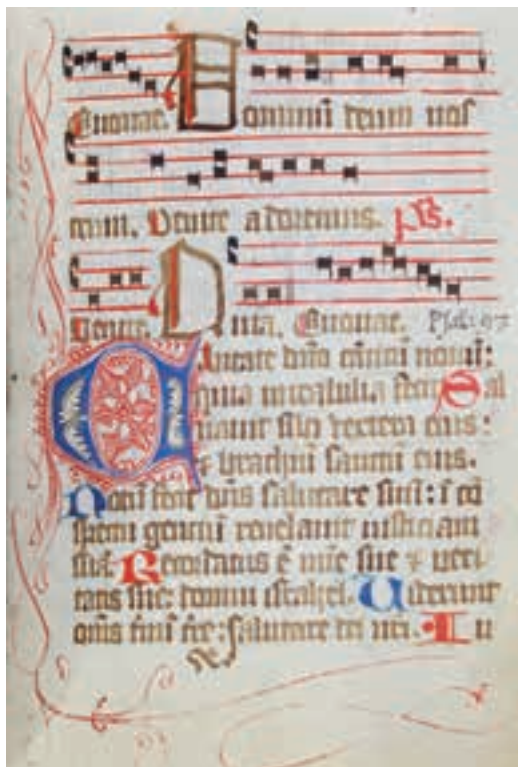 Euouae. Dominū deum nos
trum. Venite adoremus. Ps.
Venite. Euouae. Psal: 97
Cantate dn̄o cāticū nouū:
quia mirabilia fecit Sal
uauit sibi dextera eius:
brachiū sanctū eius.
Notū fecit dn̄s salutare suū: ī cō
spectu gentiū reuelauit iusticiam
suā. Recordatus ē mīe sue & veri
tatis sue: domui israhel. Uiderunt
om̄s fines tr̄e: salutare dei nr̄i. Iu